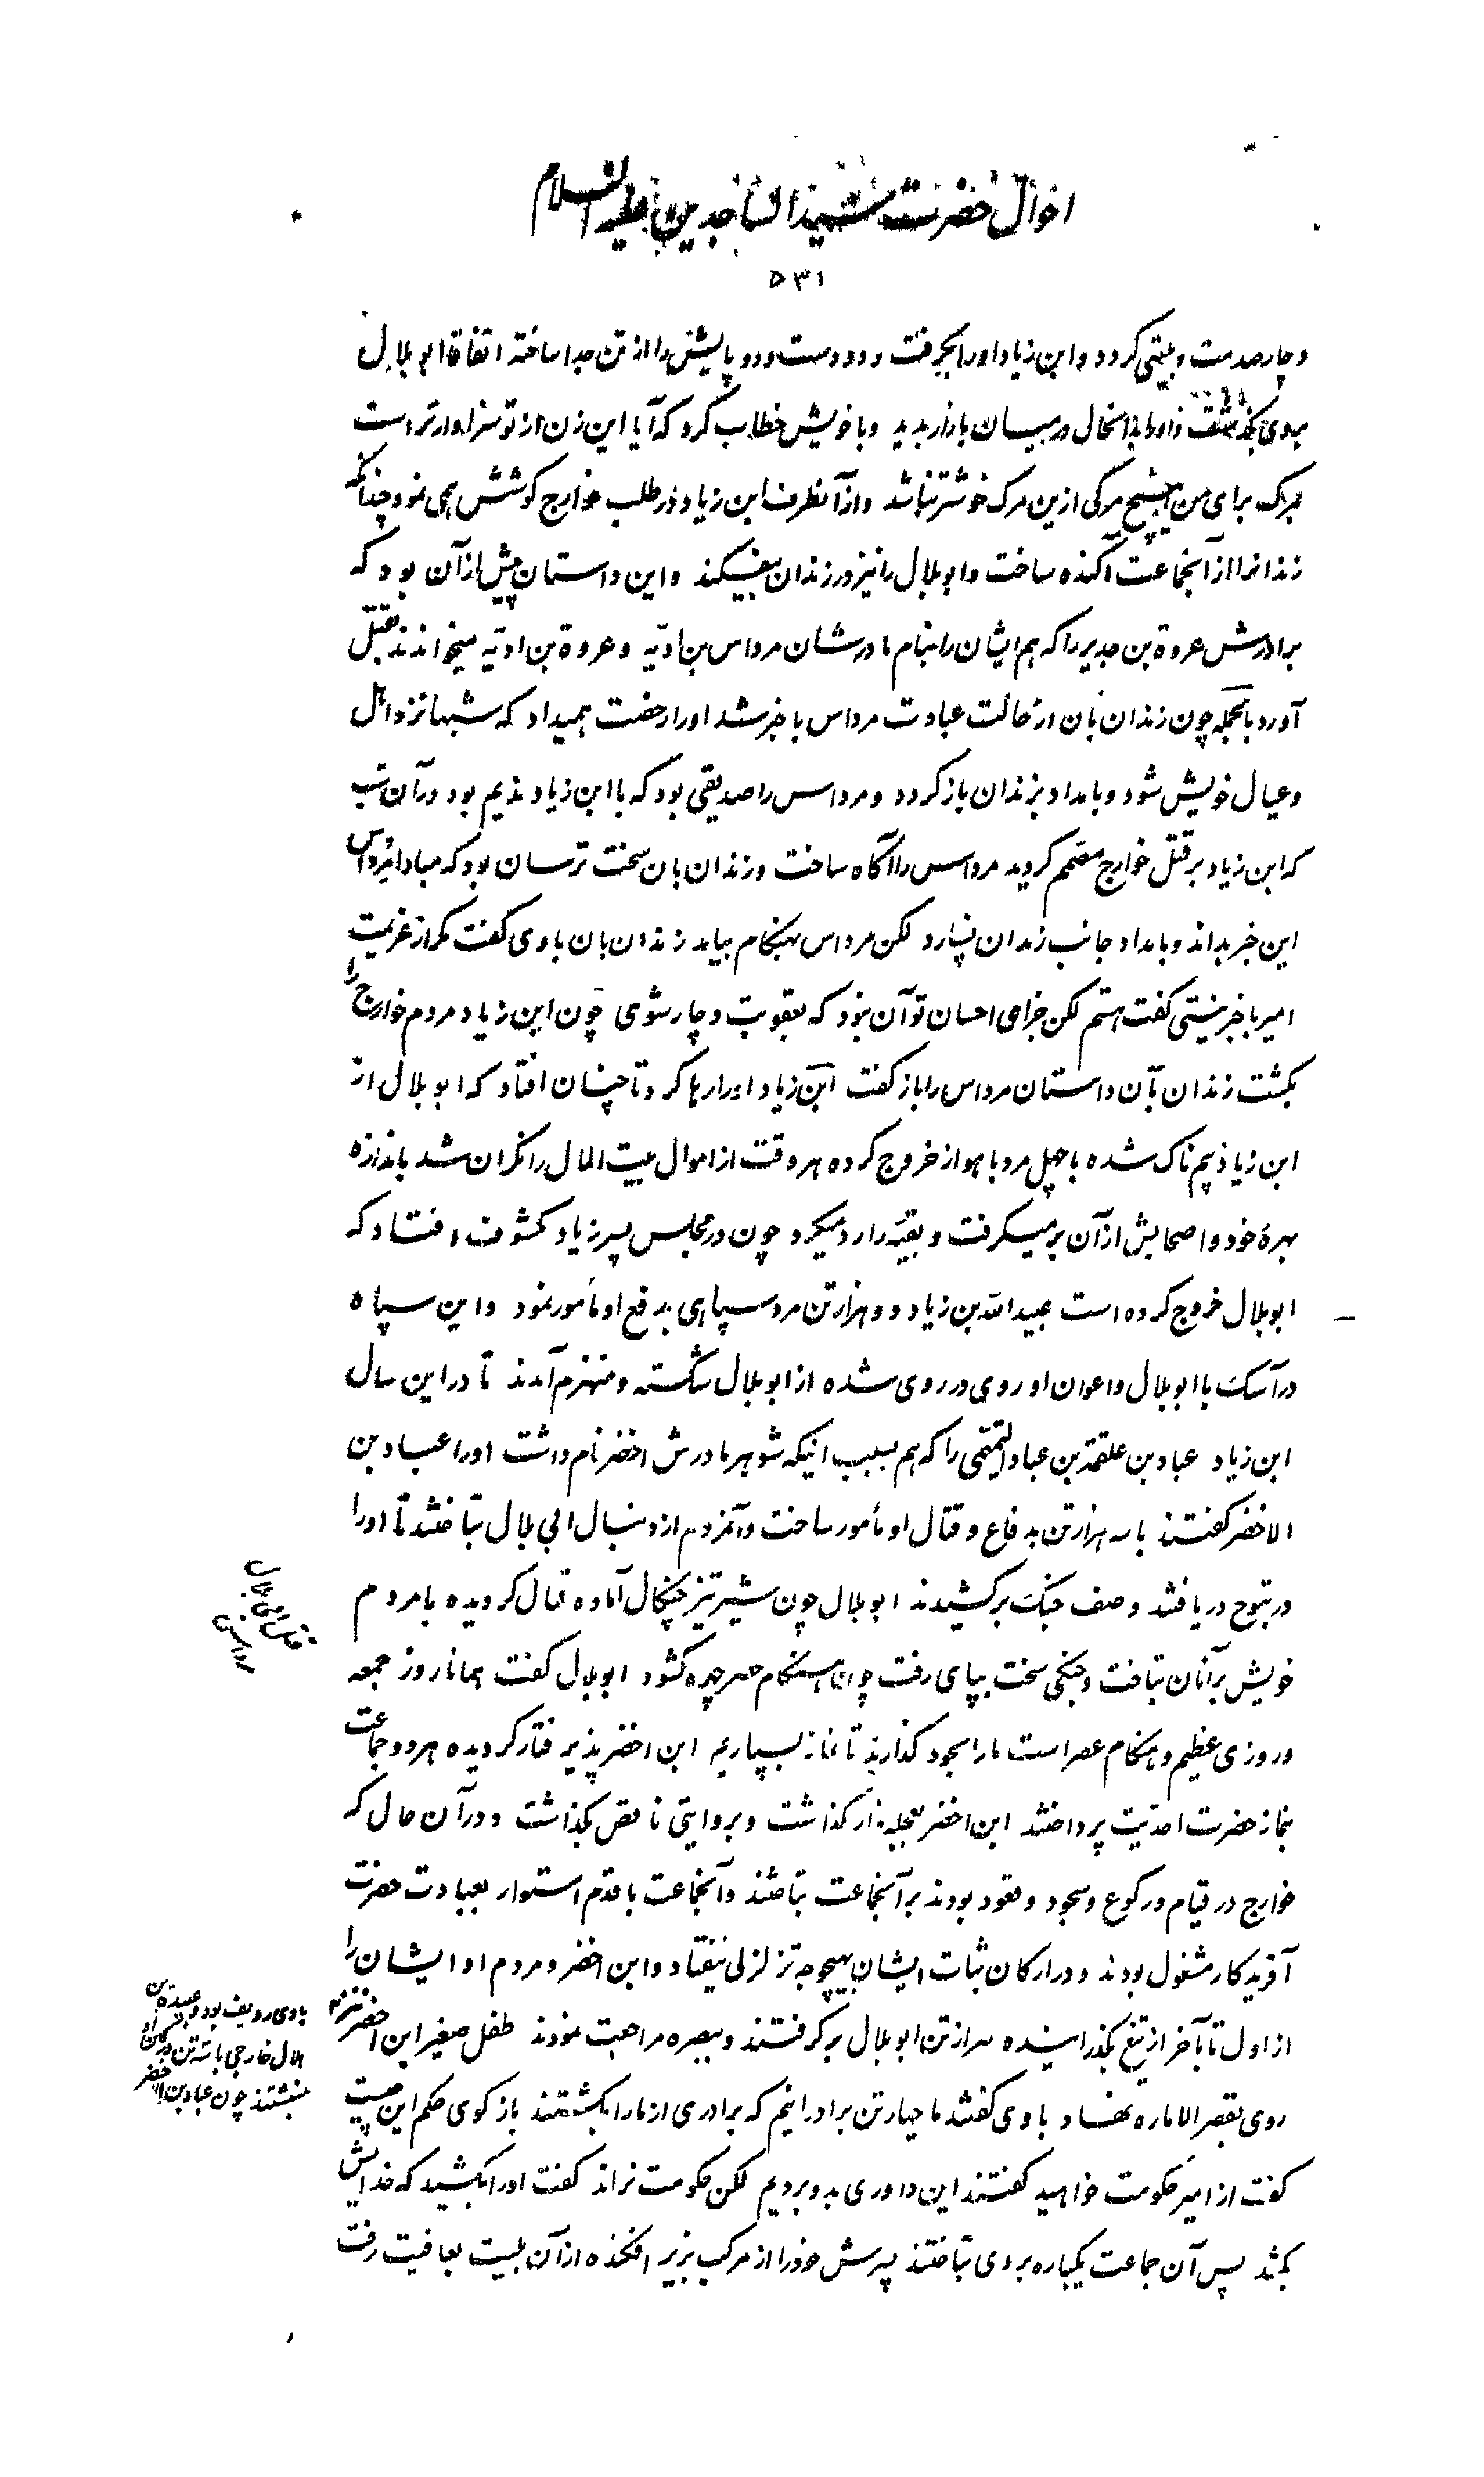 احوال حضرت سید الساجدین علیه السلام
۵۳۱
دچار صدمت و بلیتی گردد و ابن زیاد او را بگرفت و دو دست و دو پایش را از تن جدا ساخته اتفاقا ابو بلال
بروی بگذشت و او را بدانحال در میان بازار بدید و با خویش خطاب کرد که آیا این زن از تو سزاوارتر است
بمرک برای من هیچ مرگی ازین مرک خوشتر نباشد و از آنطرف ابن زیاد در طلب خوارج کوشش همی نمود چندانکه
زندانرا از آنجماعت آکنده ساخت و ابو بلال را نیز در زندان بیفکند و این داستان پیش از آن بود که
برادرش عروة بن حدیر را که هم ایشان را بنام مادرشان مرداس بن ادیّه و عروة بن ادیّه میخواندند بقتل
آورد بالجمله چون زندان بان از حالت عبادت مرداس با خبر شد او را رخصت همیداد که شبها نزد اهل
و عیال خویش شود و بامداد بزندان باز گردد و مرداس را صدیقی بود که با ابن زیاد ندیم بود در آن شب
که ابن زیاد بر قتل خوارج مصمّم گردید مرداس را آگاه ساخت و زندان بان سخت ترسان بود که مبادا مرداس
این خبر بداند و بامداد جانب زندان نسپارد لکن مرداس بهنکام بیامد زندان بان با وی گفت مگر از عزیمت
امیر با خبر نیستی گفت هستم لکن جزای احسان تو آن نبود که بعقوبت دچار شوی چون ابن زیاد مردم خوارج را
بکشت زندان بان داستان مرداس را باز گفت ابن زیاد او را رها کرد تا چنان افتاد که ابو بلال از
ابن زیاد بیم ناک شده با چهل مرد باهواز خروج کرده هر وقت از اموال بیت المال را نکران شد باندازه
بهرهٔ خود و اصحابش از آن بر میگرفت و بقیّه را رد میکرد چون در مجلس پسر زیاد مکشوف افتاد که
ابو بلال خروج کرده است عبید الله بن زیاد دو هزار تن مرد سپاهی بدفع او مأمور نمود و این سپاه
در آسک با ابو بلال و اعوان او روی در روی شده از ابو بلال شکسته و منهزم آمدند تا در این سال
ابن زیاد عباد بن علقمة بن عباد التمیمی را که هم بسبب اینکه شوهر مادرش اخضر نام داشت او را عباد بن
الاخضر گفتند با سه هزار تن بدفاع و قتال او مأمور ساخت و آنمردم از دنبال ابی بلال بتاختند تا او را
در توج دریافتند و صف جنک برکشیدند ابو بلال چون شیر تیز چنکال آماده قتال گردیده با مردم
خویش بر آنان بتاخت و جنکی سخت بپای رفت چون هنگام عصر چهره گشود ابو بلال گفت همانا روز جمعه
و روزی عظیم و هنکام عصر است ما را بخود گذارید تا نماز بسپاریم ابن اخضر پذیرفتار گردیده هر دو جماعت
بنماز حضرت احدیت پرداختند ابن اخضر بعجله نماز گذاشت و بروایتی ناقص بگذاشت و در آن حال که
خوارج در قیام و رکوع و سجود و قعود بودند بر آنجماعت بتاختند و آنجماعت با قدم استوار بعبادت حضرت
آفریدکار مشغول بودند و در ارکان ثبات ایشان بهیچوجه تزلزلی نیفتاد و ابن اخضر و مردم او ایشان را
از اول تا بآخر از تیغ بگذرانیده سر از تن ابو بلال برگرفتند و ببصره مراجعت نمودند طفل صغیر ابن اخضر نیز
روی بقصر الاماره نهاد با وی گفتند ما چهار تن برادرانیم که برادری از ما را بکشتند باز گوی حکم این چیست
گفت از امیر حکومت خواهید گفتند این داوری بدو بردیم لکن حکومت نراند گفت او را بکشید که خدایش
بکشد پس آن جماعت یکباره بر وی بتاختند پسرش خود را از مرکب بزیر افکنده از آن بلیت بعافیت رفت
قتل ابی بلال
مرداس
با وی ردیف بود و عبیده بن
هلال خارجی با سه تن در کمین
بنشستند چون عباد بن اخضر